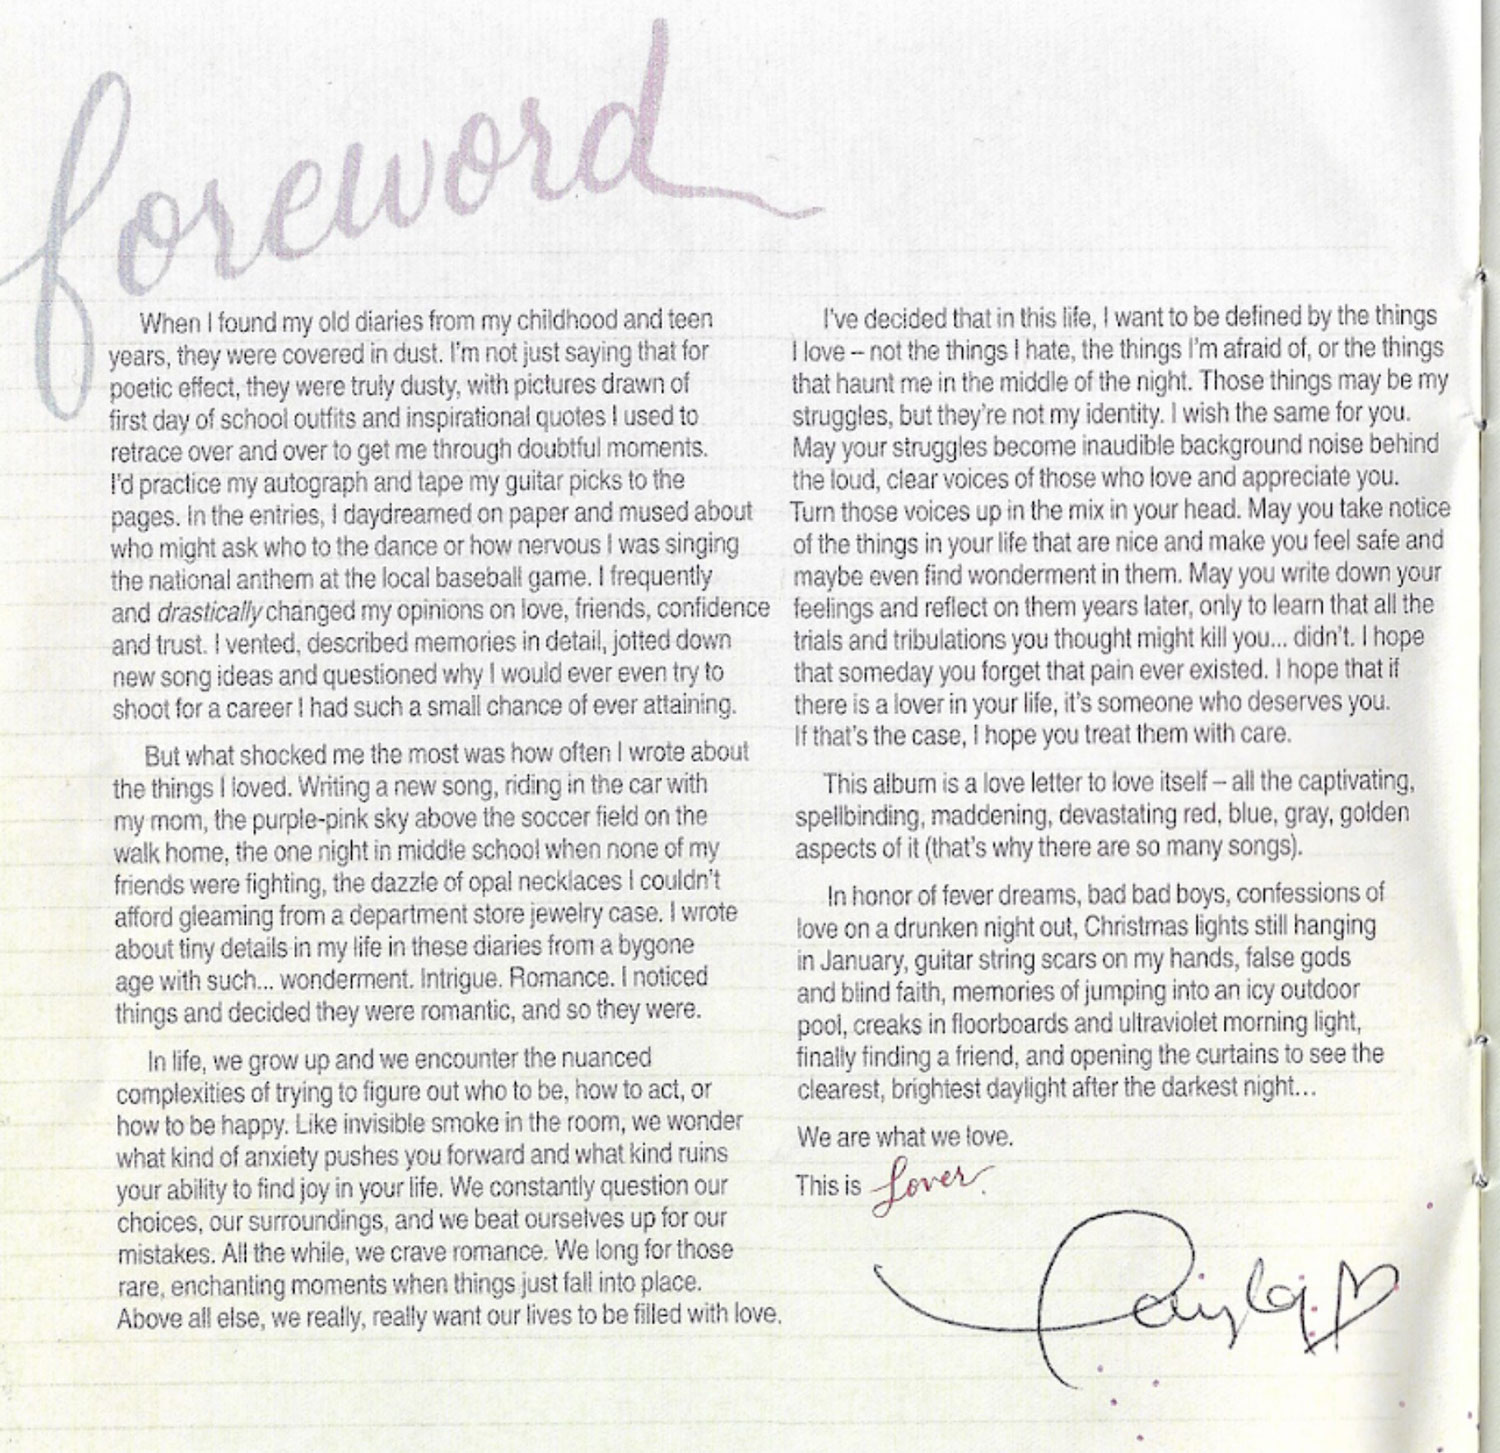 foreword
When I found my old diaries from my childhood and teen
years, they were covered in dust. I'm not just saying that for
poetic effect, they were truly dusty, with pictures drawn of
first day of school outfits and inspirational quotes I used to
retrace over and over to get me through doubtful moments.
I'd practice my autograph and tape my guitar picks to the
pages. In the entries, I daydreamed on paper and mused about
who might ask who to the dance or how nervous I was singing
the national anthem at the local baseball game. I frequently
and drastically changed my opinions on love, friends, confidence
and trust. I vented, described memories in detail, jotted down
new song ideas and questioned why I would ever even try to
shoot for a career I had such a small chance of ever attaining.
But what shocked me the most was how often I wrote about
the things I loved. Writing a new song, riding in the car with
my mom, the purple-pink sky above the soccer field on the
walk home, the one night in middle school when none of my
friends were fighting, the dazzle of opal necklaces I couldn't
afford gleaming from a department store jewelry case. I wrote
about tiny details in my life in these diaries from a bygone
age with such... wonderment. Intrigue. Romance. I noticed
things and decided they were romantic, and so they were.
In life, we grow up and we encounter the nuanced
complexities of trying to figure out who to be, how to act, or
how to be happy. Like invisible smoke in the room, we wonder
what kind of anxiety pushes you forward and what kind ruins
your ability to find joy in your life. We constantly question our
choices, our surroundings, and we beat ourselves up for our
mistakes. All the while, we crave romance. We long for those
rare, enchanting moments when things just fall into place.
Above all else, we really, really want our lives to be filled with love.
I've decided that in this life, I want to be defined by the things
I love – not the things I hate, the things I'm afraid of, or the things
that haunt me in the middle of the night. Those things may be my
struggles, but they're not my identity. I wish the same for you.
May your struggles become inaudible background noise behind
the loud, clear voices of those who love and appreciate you.
Turn those voices up in the mix in your head. May you take notice
of the things in your life that are nice and make you feel safe and
maybe even find wonderment in them. May you write down your
feelings and reflect on them years later, only to learn that all the
trials and tribulations you thought might kill you... didn't. I hope
that someday you forget that pain ever existed. I hope that if
there is a lover in your life, it's someone who deserves you.
If that's the case, I hope you treat them with care.
This album is a love letter to love itself – all the captivating,
spellbinding, maddening, devastating red, blue, gray, golden
aspects of it (that's why there are so many songs).
In honor of fever dreams, bad bad boys, confessions of
love on a drunken night out, Christmas lights still hanging
in January, guitar string scars on my hands, false gods
and blind faith, memories of jumping into an icy outdoor
pool, creaks in floorboards and ultraviolet morning light,
finally finding a friend, and opening the curtains to see the
clearest, brightest daylight after the darkest night...
We are what we love.
This is Lover.